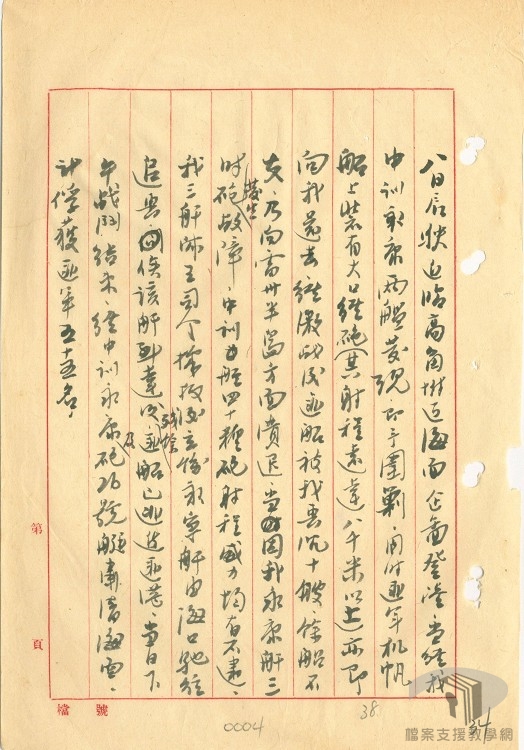 八日辰駛近臨高角附近海面企圖登陸當經我
中訓永康兩艦發現即予圍剿同時匪軍機帆
船上裝有大口徑砲(其射程遠達八千米以上)亦即
向我還擊經激戰後匪船被我擊沉十艘餘船不
支乃向雷州半島方面潰退當時因我永康艦三
時砲發生故障中訓艦四十糎砲射程威力均有不逮
我三艦隊王司令據報後立飭永寧艦由海口馳往
追擊俟該艦到達後殘餘匪船已逃避匪港當日下
午戰鬥結束經中訓永康及砲16號艇肅清海面
計俘獲匪軍五十五名
第 頁
檔 號
0004
38
34
檔案支援教學網